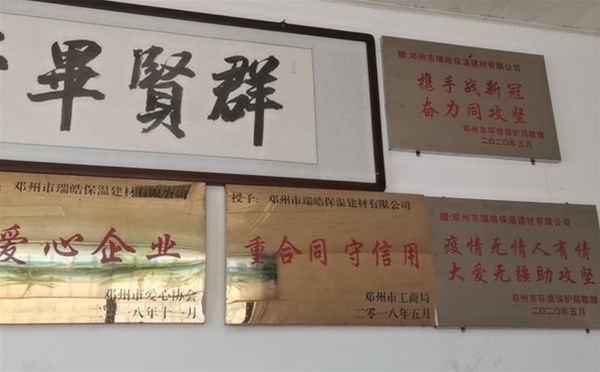 群賢畢
赠:邓州市瑞皓保温建材有限公司
携手战新冠
奋力同攻坚
邓州市环境保护局敬赠
二〇二〇年五月
邓州市瑞皓保温建材有限公司
爱心企业
邓州市爱心协会
二〇一八年十一月
授予:邓州市瑞皓保温建材有限公司
重合同守信用
邓州市工商局
二零一八年五月
赠:邓州市瑞皓保温建材有限公司
疫情无情人有情
大爱无疆助攻坚
邓州市环境保护局敬赠
二〇二〇年五月